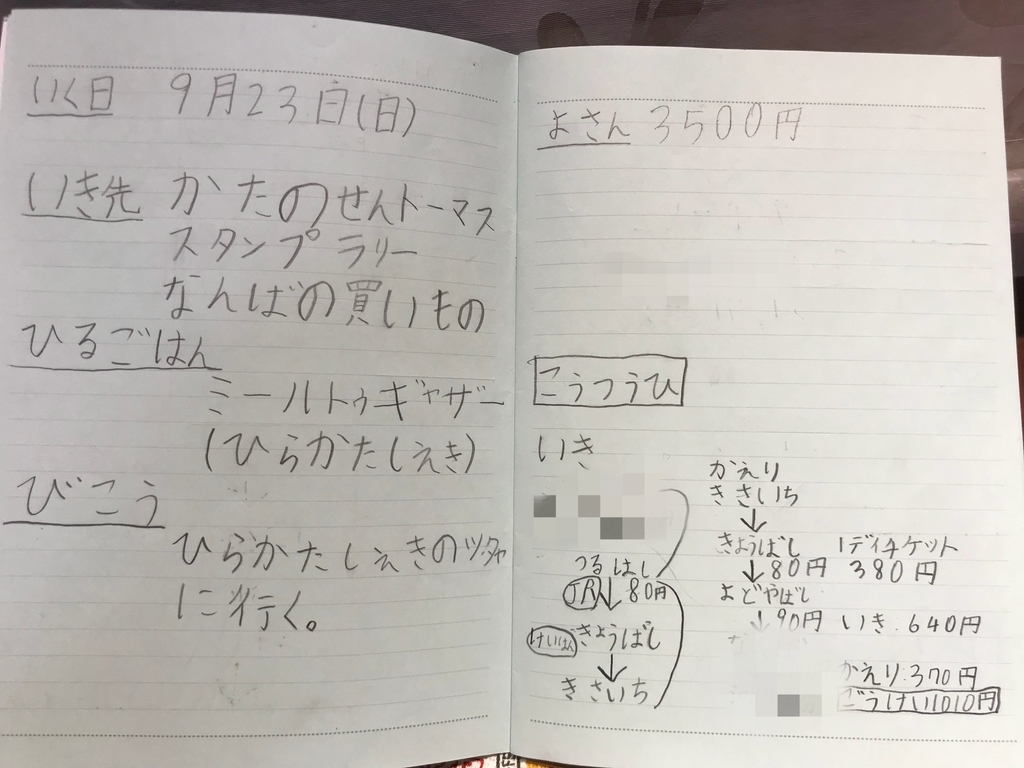 いく日 9月23日(日)
いき先 かたのせんトーマス
スタンプラリー
なんばの買いもの
ひるごはん
ミールトゥギャザー
(ひらかたしえき)
びこう
ひらかたしえきのツタヤ
に行く。
よさん 3500円
こうつうひ
いき
つるはし
JR 80円
けいはん きょうばし
きさいち
かえり
きさいち
↓
きょうばし 1ディチケット
↓80円 380円
よどやばし
↓90円 いき.640円
かえり.370円
ごうけい1010円